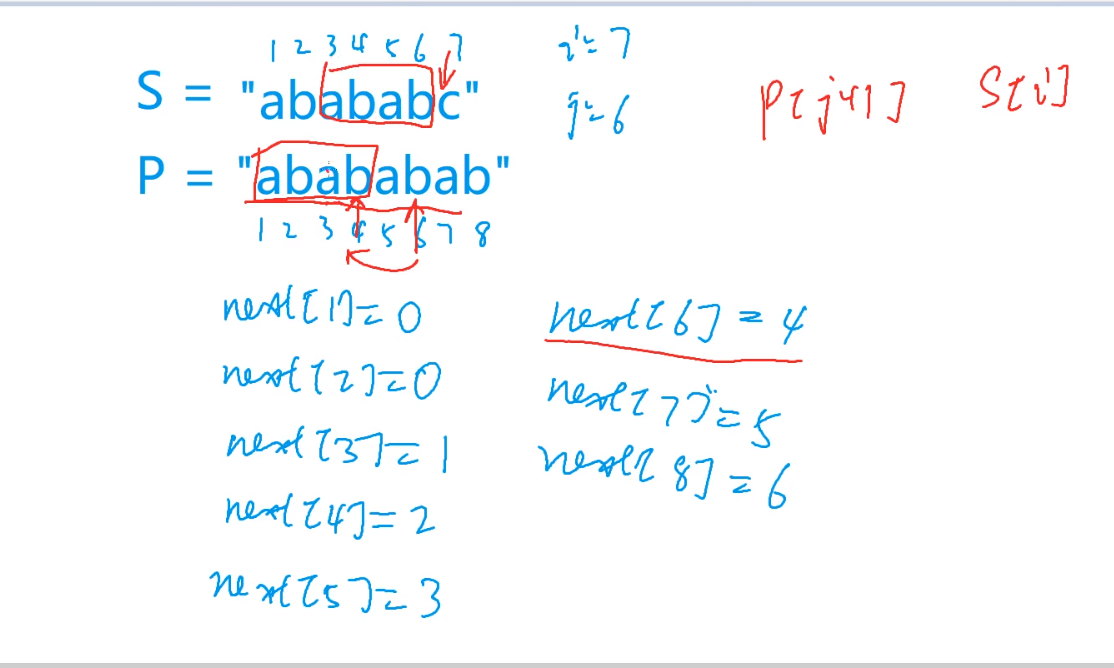 1 2 3 4 5 6 7
i=7
S = "abababc"
j=6
P[j+1] S[i]
P = "abababab"
1 2 3 4 5 6 7 8
next[1]=0
next[2]=0
next[3]=1
next[4]=2
next[5]=3
next[6]=4
next[7]=5
next[8]=6